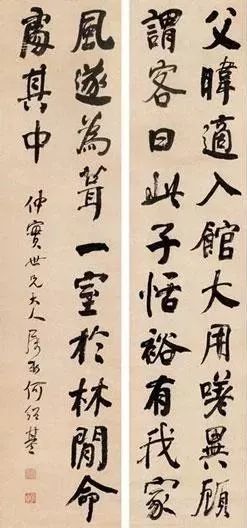 父暐適入館大用嗟異顧
謂客曰此子恬裕有我家
風遂為葺一室於林間命
處其中
仲實世兄大人屬 何紹基